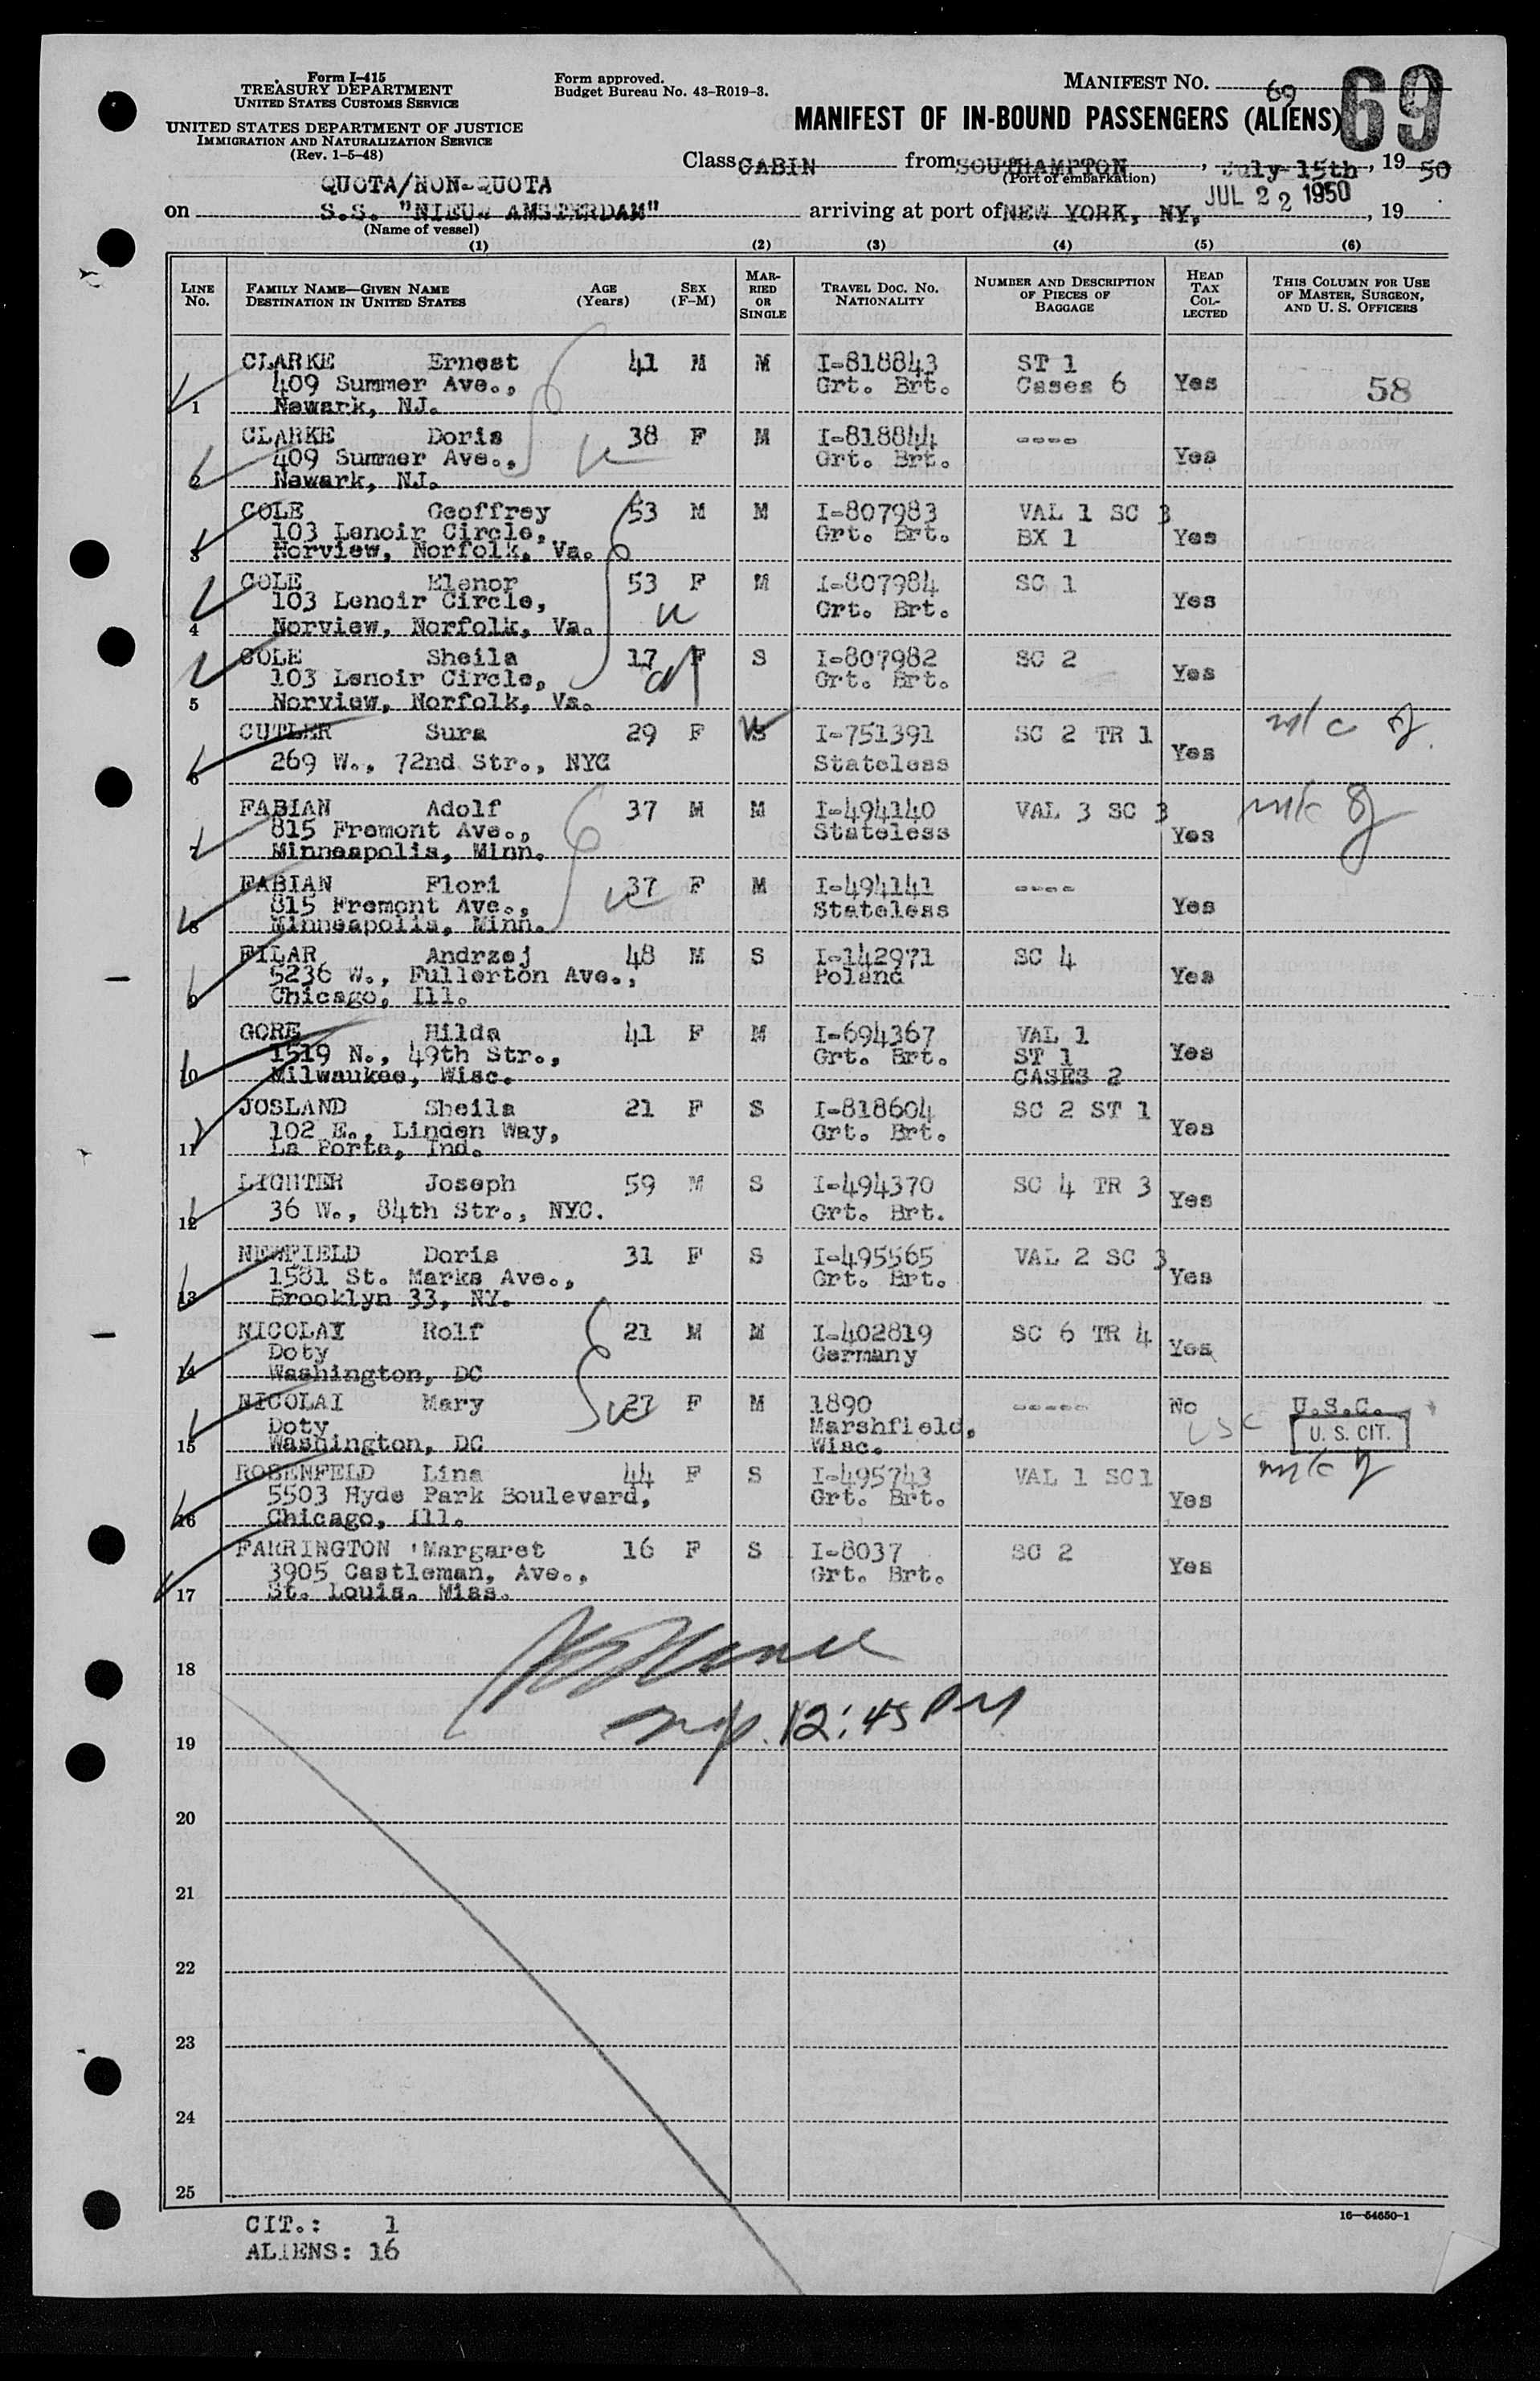 Form I-415
TREASURY DEPARTMENT
UNITED STATES CUSTOMS SERVICE
UNITED STATES DEPARTMENT OF JUSTICE
IMMIGRATION AND NATURALIZATION SERVICE
(Rev. 1-5-48)
Form approved.
Budget Bureau No. 43-R019-3.
MANIFEST NO. 69
69
MANIFEST OF IN-BOUND PASSENGERS (ALIENS)
Class CABIN from SOUTHAMPTON, July 15th, 19 50
(Port of embarkation)
QUOTA/NON-QUOTA
on S.S. "NIEUW AMSTERDAM" arriving at port of NEW YORK, NY, JUL 22 1950, 19
(Name of vessel)
(1) (2) (3) (4) (5) (6)
LINE No. FAMILY NAME—GIVEN NAME DESTINATION IN UNITED STATES AGE (Years) SEX (F-M) MARRIED OR SINGLE TRAVEL DOC. NO. NATIONALITY NUMBER AND DESCRIPTION OF PIECES OF BAGGAGE HEAD TAX COLLECTED THIS COLUMN FOR USE OF MASTER, SURGEON, AND U. S. OFFICERS
CLARKE Ernest 41 M M I-818843 ST 1
409 Summer Ave., Grt. Brt. Cases 6 Yes 58
1 Newark, NJ.
CLARKE Doris 38 F M I-818844 ----
409 Summer Ave., Grt. Brt. Yes
2 Newark, NJ.
COLE Geoffrey 53 M M I-807983 VAL 1 SC 3
103 Lenoir Circle, Grt. Brt. BX 1 Yes
3 Norview, Norfolk, Va.
COLE Elenor 53 F M I-807984 SC 1
103 Lenoir Circle, Grt. Brt. Yes
4 Norview, Norfolk, Va.
COLE Sheila 17 F S I-807982 SC 2
103 Lenoir Circle, Grt. Brt. Yes
5 Norview, Norfolk, Va.
CUTLER Sura 29 F S I-751391 SC 2 TR 1 m/c
6 269 W., 72nd Str., NYC Stateless Yes
FABIAN Adolf 37 M M I-494140 VAL 3 SC 3 m/c
815 Fremont Ave., Stateless Yes
7 Minneapolis, Minn.
FABIAN Flori 37 F M I-494141 ----
815 Fremont Ave., Stateless Yes
8 Minneapolis, Minn.
FILAR Andrzej 48 M S I-142971 SC 4
5236 W., Fullerton Ave., Poland Yes
9 Chicago, Ill.
GORE Hilda 41 F M I-694367 VAL 1
1519 N., 49th Str., Grt. Brt. ST 1 Yes
10 Milwaukee, Wisc. CASES 2
JOSLAND Sheila 21 F S I-818604 SC 2 ST 1
102 E., Linden Way, Grt. Brt. Yes
11 La Porte, Ind.
LIGHTER Joseph 59 M S I-494370 SC 4 TR 3
12 36 W., 84th Str., NYC. Grt. Brt. Yes
NEWFIELD Doris 31 F S I-495565 VAL 2 SC 3
1581 St. Marks Ave., Grt. Brt. Yes
13 Brooklyn 33, NY.
NICOLAI Rolf 21 M M I-402819 SC 6 TR 4
Doty Germany Yes
14 Washington, DC
NICOLAI Mary 27 F M 1890 ----- No U.S.C.
Doty Marshfield, USC U. S. CIT.
15 Washington, DC Wisc.
ROSENFELD Lina 44 F S I-495743 VAL 1 SC1 m/c
5503 Hyde Park Boulevard, Grt. Brt. Yes
16 Chicago, Ill.
FARRINGTON Margaret 16 F S I-8037 SC 2
3905 Castleman, Ave., Grt. Brt. Yes
17 St. Louis, Miss.
18
12:45 PM
19
20
21
22
23
24
25
16—54650-1
CIT.: 1
ALIENS: 16